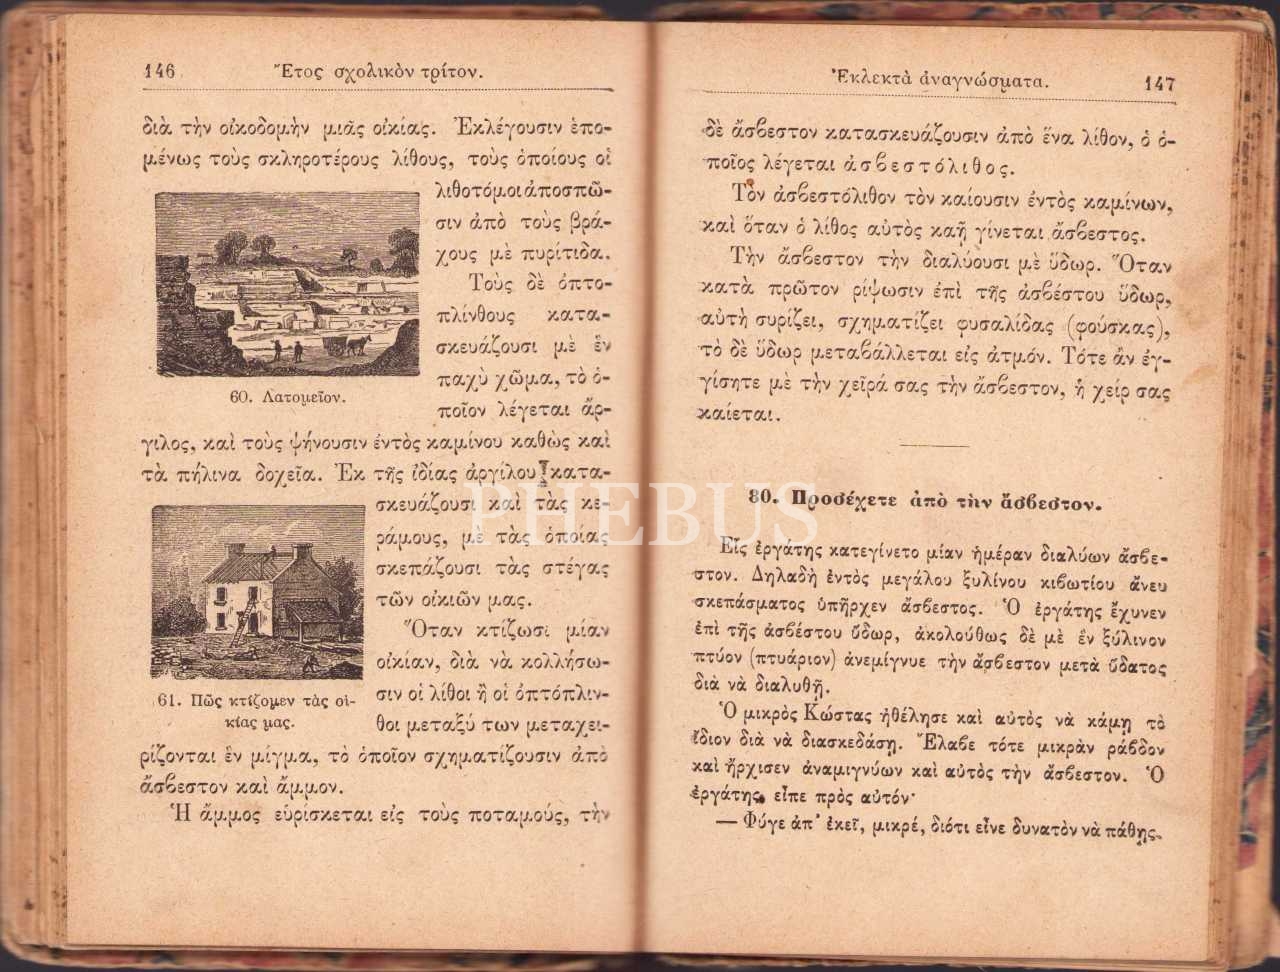 146
Ἔτος σχολικὸν τρίτον.
διὰ τὴν οἰκοδομὴν μιᾶς οἰκίας. Ἐκλέγουσιν ἑπο-
μένως τοὺς σκληροτέρους λίθους, τοὺς ὁποίους οἱ
λιθοτόμοι ἀποσπῶ-
σιν ἀπὸ τοὺς βρά-
χους μὲ πυρίτιδα.
Τοὺς δὲ ὀπτο-
πλίνθους κατα-
σκευάζουσι μὲ ἓν
παχὺ χῶμα, τὸ ὁ-
ποῖον λέγεται ἄρ-
60. Λατομεῖον.
γιλος, καὶ τοὺς ψήνουσιν ἐντὸς καμίνου καθὼς καὶ
τὰ πήλινα δοχεῖα. Ἐκ τῆς ἰδίας ἀργίλου κατα-
σκευάζουσι καὶ τὰς κε-
ράμους, μὲ τὰς ὁποίας
σκεπάζουσι τὰς στέγας
τῶν οἰκιῶν μας.
Ὅταν κτίζωσι μίαν
οἰκίαν, διὰ νὰ κολλήσω-
σιν οἱ λίθοι ἢ οἱ ὀπτόπλιν-
θοι μεταξύ των μεταχει-
61. Πῶς κτίζομεν τὰς οἰ-
κίας μας.
ρίζονται ἓν μίγμα, τὸ ὁποῖον σχηματίζουσιν ἀπὸ
ἄσβεστον καὶ ἄμμον.
Ἡ ἄμμος εὑρίσκεται εἰς τοὺς ποταμούς, τὴν
Ἐκλεκτὰ ἀναγνώσματα.
147
δὲ ἄσβεστον κατασκευάζουσιν ἀπὸ ἕνα λίθον, ὁ ὁ-
ποῖος λέγεται ἀσβεστόλιθος.
Τὸν ἀσβεστόλιθον τὸν καίουσιν ἐντὸς καμίνων,
καὶ ὅταν ὁ λίθος αὐτὸς καῇ γίνεται ἄσβεστος.
Τὴν ἄσβεστον τὴν διαλύουσι μὲ ὕδωρ. Ὅταν
κατὰ πρῶτον ρίψωσιν ἐπὶ τῆς ἀσβέστου ὕδωρ,
αὐτὴ συρίζει, σχηματίζει φυσαλίδας (φούσκας),
τὸ δὲ ὕδωρ μεταβάλλεται εἰς ἀτμόν. Τότε ἂν ἐγ-
γίσητε μὲ τὴν χεῖρά σας τὴν ἄσβεστον, ἡ χείρ σας
καίεται.
80. Προσέχετε ἀπὸ τὴν ἄσβεστον.
Εἷς ἐργάτης κατεγίνετο μίαν ἡμέραν διαλύων ἄσβε-
στον. Δηλαδὴ ἐντὸς μεγάλου ξυλίνου κιβωτίου ἄνευ
σκεπάσματος ὑπῆρχεν ἄσβεστος. Ὁ ἐργάτης ἔχυνεν
ἐπὶ τῆς ἀσβέστου ὕδωρ, ἀκολούθως δὲ μὲ ἓν ξύλινον
πτύον (πτυάριον) ἀνεμίγνυε τὴν ἄσβεστον μετὰ ὕδατος
διὰ νὰ διαλυθῇ.
Ὁ μικρὸς Κώστας ἠθέλησε καὶ αὐτὸς νὰ κάμῃ τὸ
ἴδιον διὰ νὰ διασκεδάσῃ. Ἔλαβε τότε μικρὰν ράβδον
καὶ ἤρχισεν ἀναμιγνύων καὶ αὐτὸς τὴν ἄσβεστον. Ὁ
ἐργάτης εἶπε πρὸς αὐτόν·
— Φύγε ἀπ' ἐκεῖ, μικρέ, διότι εἶνε δυνατὸν νὰ πάθῃς.
PHEBUS